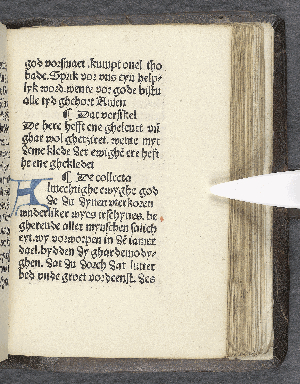 god vorsmaet. kumpt onel tho
bade. Sprik vor vns eyn help-
lyk word. wente vor gode bistu
alle tyd ghehort Amen
¶ Dat versikel
De here hefft ene ghelenet vñ
ghar wol ghetziret. wente myt
deme klede der ewighē ere heft
he ene ghekledet
¶ De collecta
Almechtighe ewyghe god
de du dynen vterkoren
wunderliker wyes erschynest. be
gherende aller mynschen salich
eyt. wy vorworpen in dē iamer
dael. bydden dy ghar demody-
ghen. dat du dorch dat lutter
bed vnde groet vordeenst. des